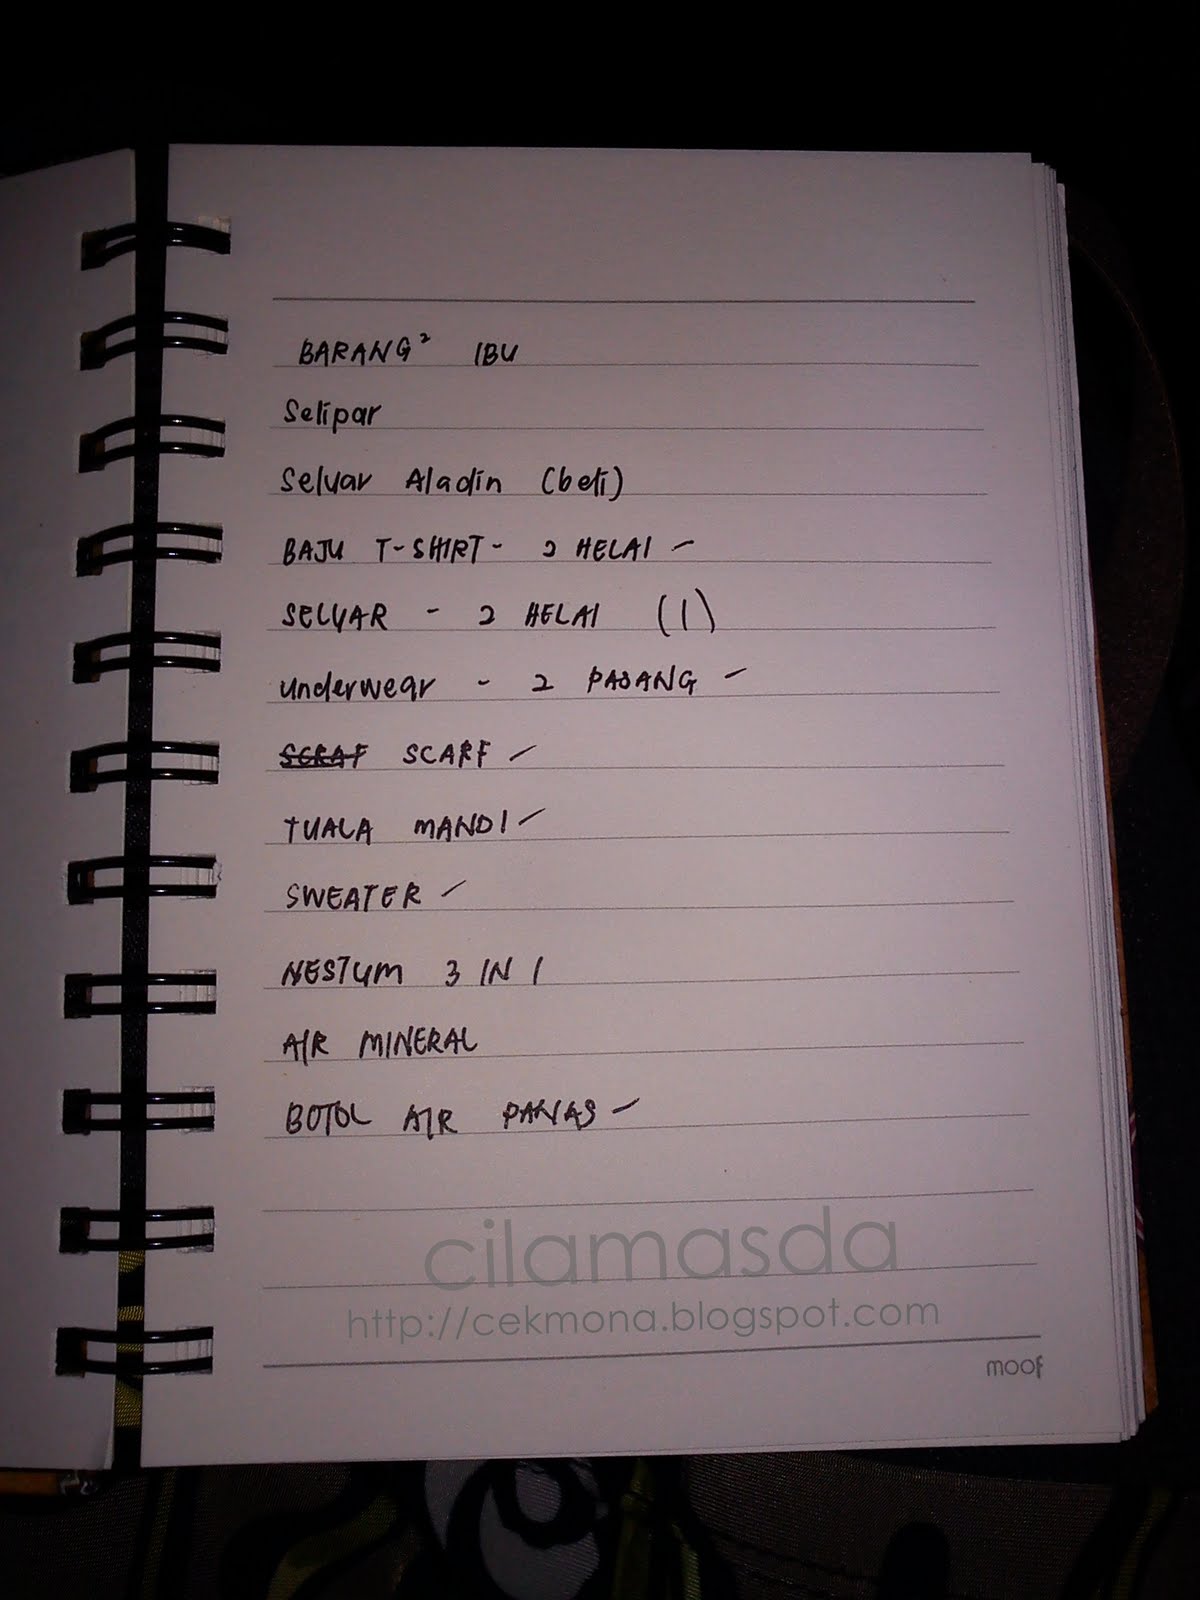 BARANG² IBU
Selipar
Seluar Aladin (beli)
BAJU T-SHIRT - 2 HELAI -
SELUAR - 2 HELAI (1)
underwear - 2 PASANG -
SCRAF SCARF -
TUALA MANDI -
SWEATER -
NESTUM 3 IN 1
AIR MINERAL
BOTOL AIR PANAS -
cilamasda
http://cekmona.blogspot.com
moof